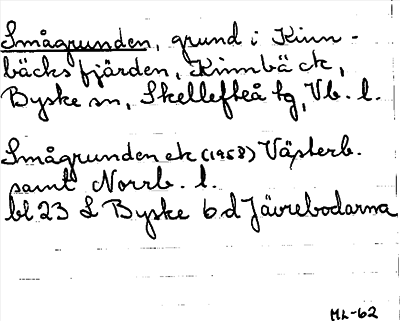 Smågrunden, grund i Kinn-
bäcksfjärden, Kinnbäck,
Byske sn, Skellefteå tg, Vb. l.
Smågrunden ek (1958) Västerb.
samt Norrb. l.
bl 23 L Byske 6 d Jävrebodarna
ML-62